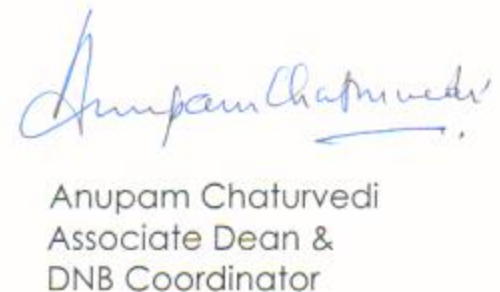 Anupam Chaturvedi
Anupam Chaturvedi
Associate Dean &
DNB Coordinator